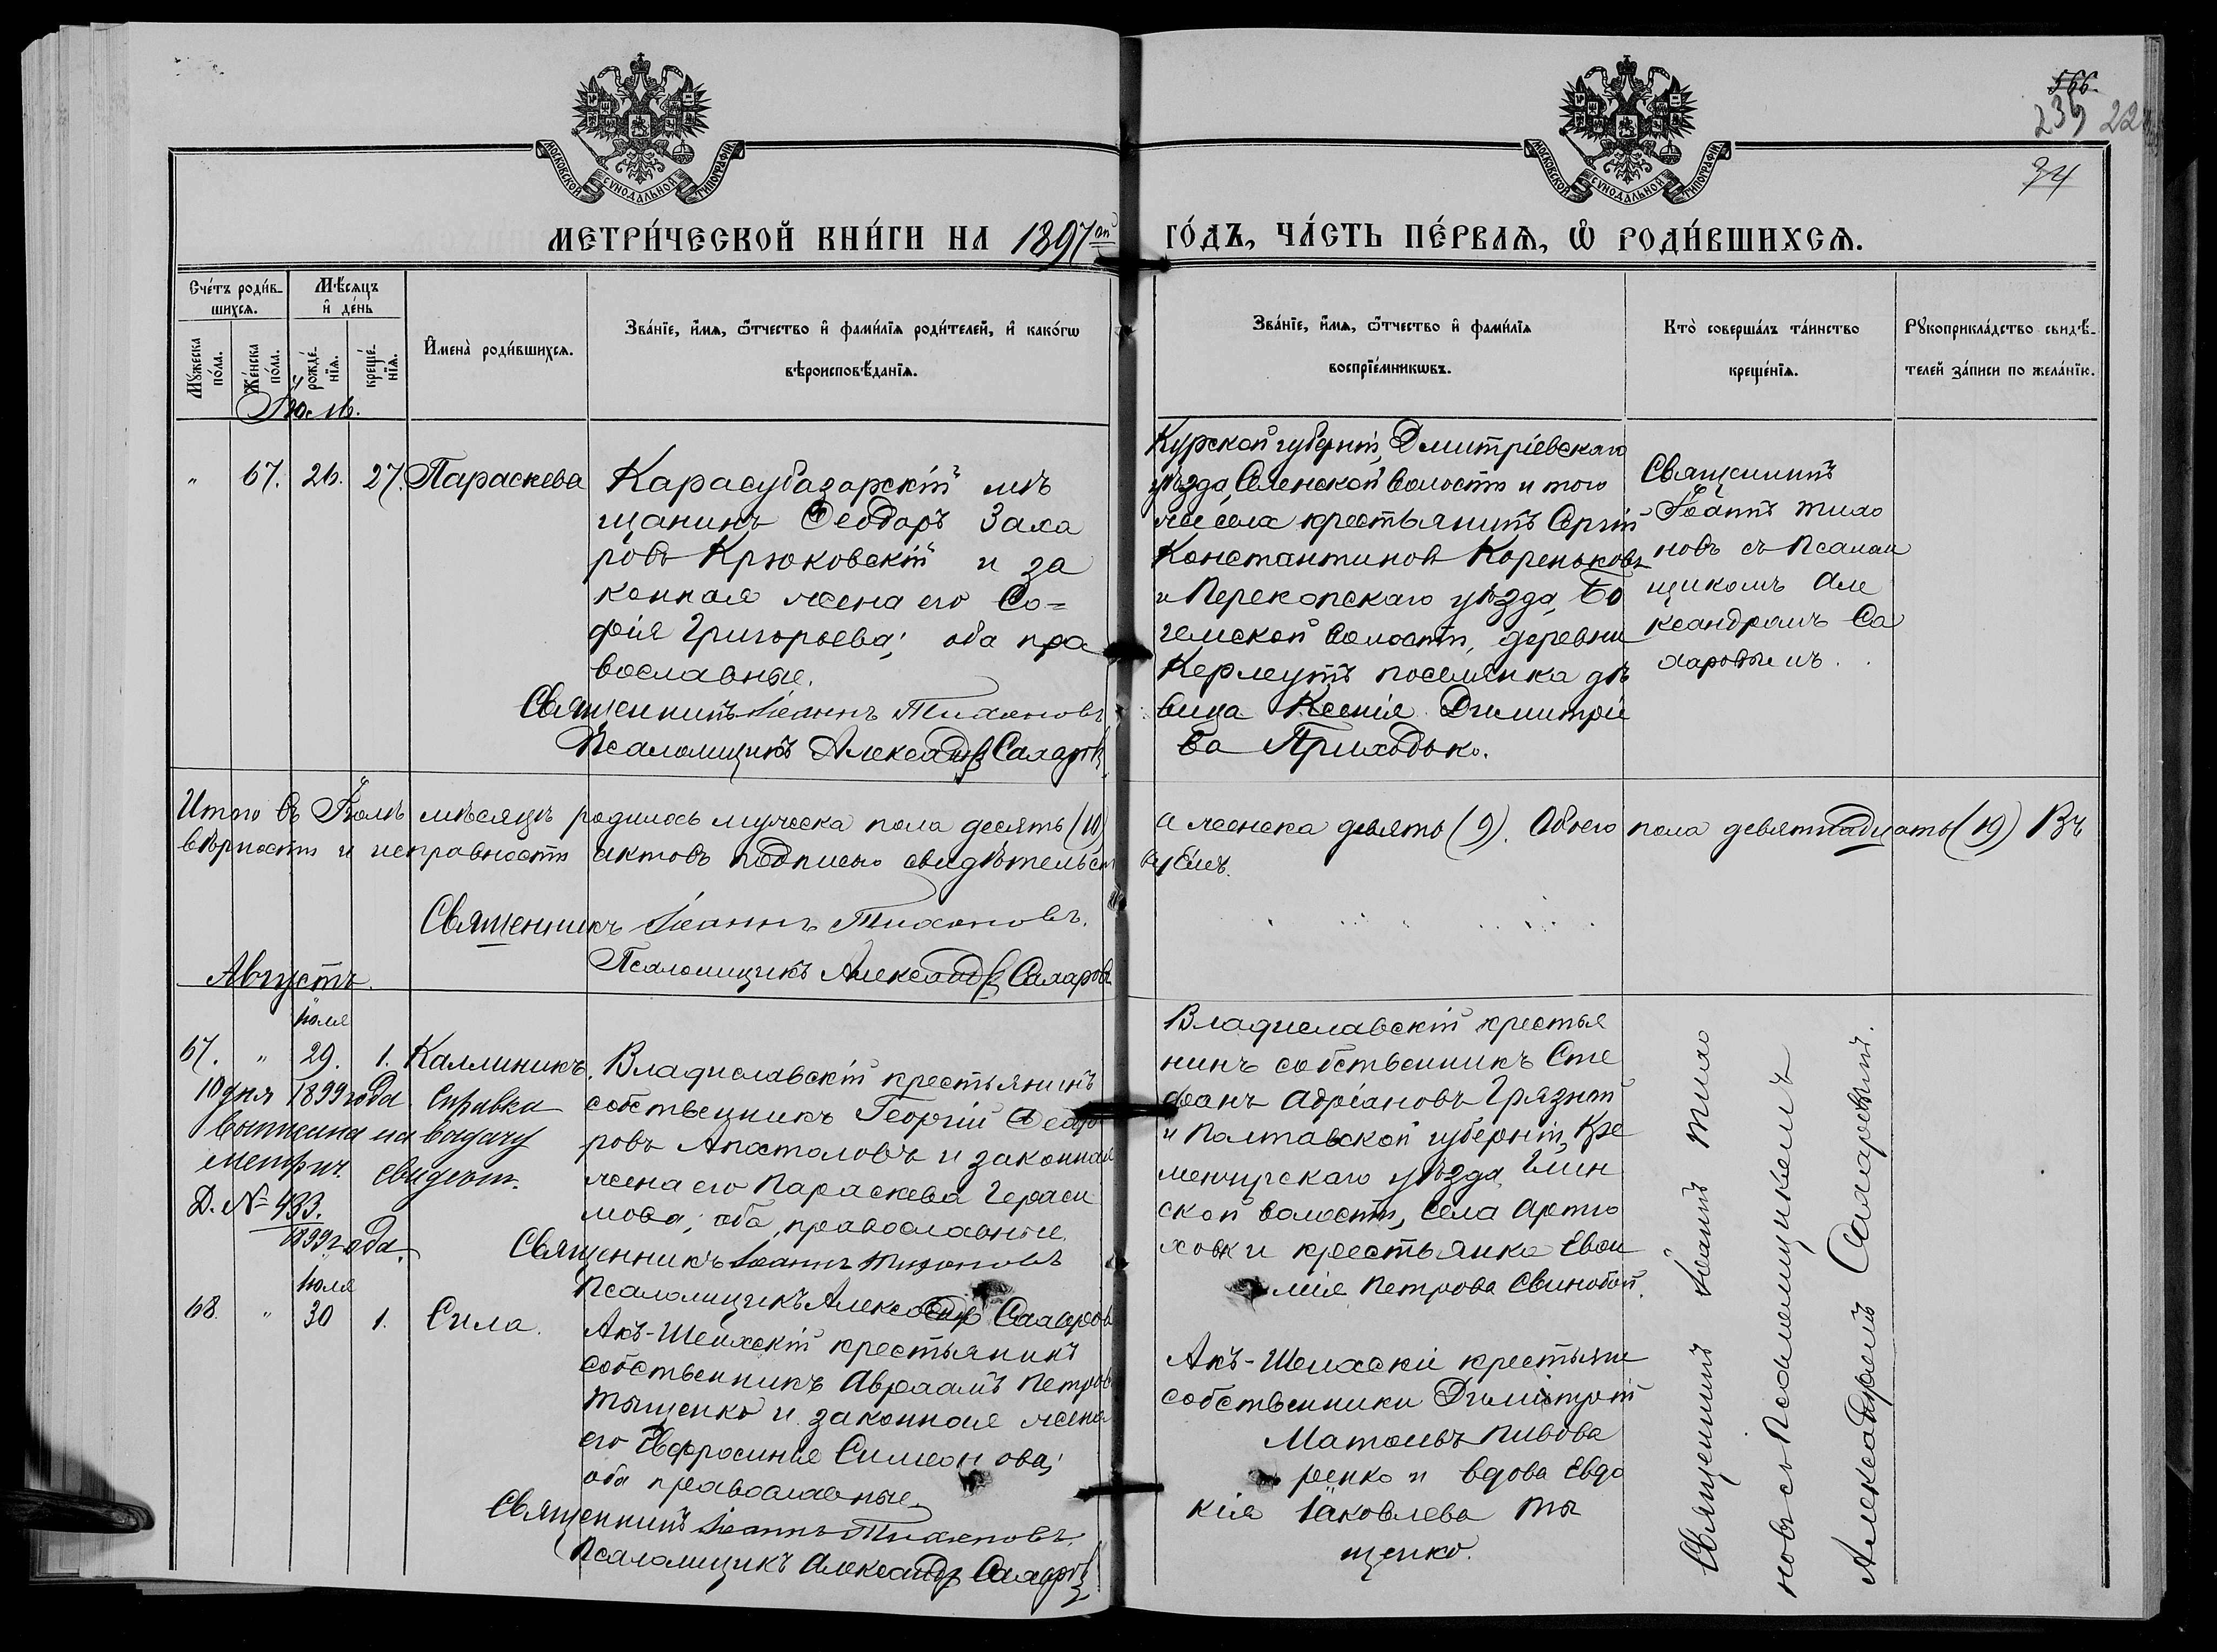 566.
235 22
34
МОСКОВСКОЙ СѴНОДАЛЬНОЙ ТИПОГРАФІИ
МОСКОВСКОЙ СѴНОДАЛЬНОЙ ТИПОГРАФІИ
МЕТРИ́ЧЕСКОЙ КНИ́ГИ НА 1897ой ГО́ДЪ, ЧА́СТЬ ПЕ́РВАѦ, Ѿ РОДИ́ВШИХСѦ.
Сче́тъ роди́в-
шихсѧ.
Мꙋ́жеска
по́ла.
Же́нска
по́ла.
Мѣ́сѧцъ
и҆ де́нь
рожде́-
нїѧ.
креще́-
нїѧ.
И҆мена̀ роди́вшихсѧ.
Зва́нїе, и҆́мѧ, ѻ҆́тчество и҆ фами́лїѧ роди́телей, и҆ како́гѡ
вѣроисповѣ́данїѧ.
Зва́нїе, и҆́мѧ, ѻ҆́тчество и҆ фами́лїѧ
воспрїе́мникѡвъ.
Кто̀ соверша́лъ та́инство
креще́нїѧ.
Рꙋкоприкла́дство свидѣ́-
телей за́писи по жела́нїю.
Іюль.
" 67. 26. 27. Параскева
Карасубазарскій мѣ
щанинъ Ѳеодоръ Заха
ровъ Крюковскій и за
конная жена его Со=
фія Григорьева; оба пра
вославные.
Священникъ Іоаннъ Тихоновъ
Псаломщикъ Александръ Сахаровъ
Курской губерніи, Дмитріевскаго
уѣзда, Селенской волости и того
же села крестьянинъ Сергій
Константиновъ Кореньковъ
и Перекопскаго уѣзда, Бо
гемской волости, деревни
Керлеутъ поселянка дѣ
вица Ксенія Димитріе
ва Приходько.
Священникъ
Іоаннъ Тихо
новъ съ псалом
щикомъ Але
ксандромъ Са
харовымъ.
Итого въ Іюлѣ мѣсяцѣ родилось мужеска пола десять (10) а женска девять (9). Обоего пола девятнадцать (19) Въ
вѣрности и исправности актовъ подписью свидѣтельствуемъ.
Священникъ Іоаннъ Тихоновъ.
Псаломщикъ Александръ Сахаровъ
Августъ.
Іюля
67. " 29. 1. Каллиникъ.
10 дня 1899 года Справка
выписана на выдачу
метрич. свидет.
Д. № 433.
1899 года.
Владиславскій крестьянинъ
собственникъ Георгій Ѳеодо
ровъ Апостоловъ и законная
жена его Параскева Гераси
мова; оба православные
Священникъ Іоаннъ Тихоновъ
Псаломщикъ Александръ Сахаровъ
Владиславскій крестья
нинъ собственникъ Сте
фанъ Адріановъ Грязній
и Полтавской губерніи, Кре
менчугскаго уѣзда, Глин
ской волости, села Артю
ховки крестьянка Евѳи
мія Петрова Свинобой.
Іюля
68. " 30 1. Сила.
Акъ-Шейхскій крестьянинъ
собственникъ Авраамъ Петровъ
Тыщенко и законная жена
его Евфросинія Симеонова;
оба православные
Священникъ Іоаннъ Тихоновъ.
Псаломщикъ Александръ Сахаровъ
Акъ-Шейхскіе крестьяне
собственники Димитрій
Матѳіевъ Пивова
ренко и вдова Евдо
кія Іаковлева Ты
щенко.
Священникъ Іоаннъ Тихо
новъ съ Псаломщикомъ
Александромъ Сахаровымъ.